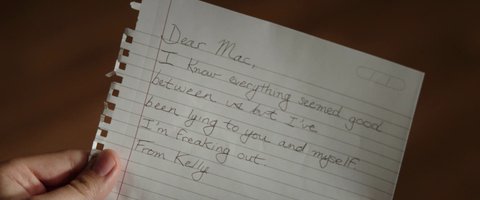 Dear Mac,
I know everything seemed good
between us but I've
been lying to you and myself.
I'm freaking out.
From Kelly